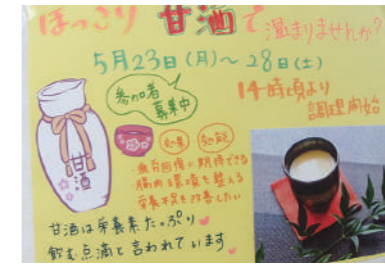 ほっこり 甘酒で温まりませんか?
5月23日(月)~28日(土)
参加者
募集中
14時頃より
調理開始
甘酒
効果 効能
・疲労回復に期待できる
・腸内環境を整える
・栄養不足を改善したい
甘酒は栄養素たっぷり
飲む点滴と言われています